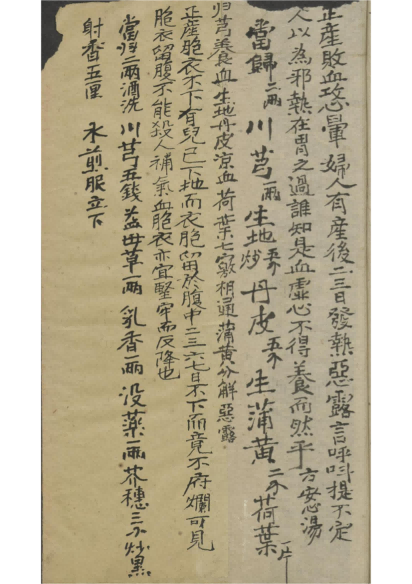 正產敗血攻心暈 婦人有產後二三日發熱惡露言呼呌提不定
人以為邪熱在胃之過誰知是血虛心不得養而然乎 方安心湯
當歸二兩 川芎一兩 生地炒 丹皮 生蒲黃二 荷葉一片
归芎養血生地丹皮凉血荷葉七竅相通蒲黃分解惡露
正產胞衣不下有兒已下地而衣胞留於腹中二三六七日不下而竟不府爛可見
胞衣留腹不能殺人補氣血胞衣亦宜堅牢而反降也
當归二兩酒洗 川芎五錢 益母草一兩 乳香一兩 没藥一兩 芥穗三 炒黑
射香五厘 水煎服立下